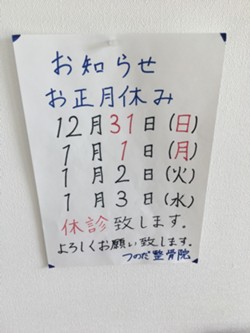 お知らせ
お正月休み
12月31日(日)
1月1日(月)
1月2日(火)
1月3日(水)
休診致します.
よろしくお願い致します.
つのだ整骨院